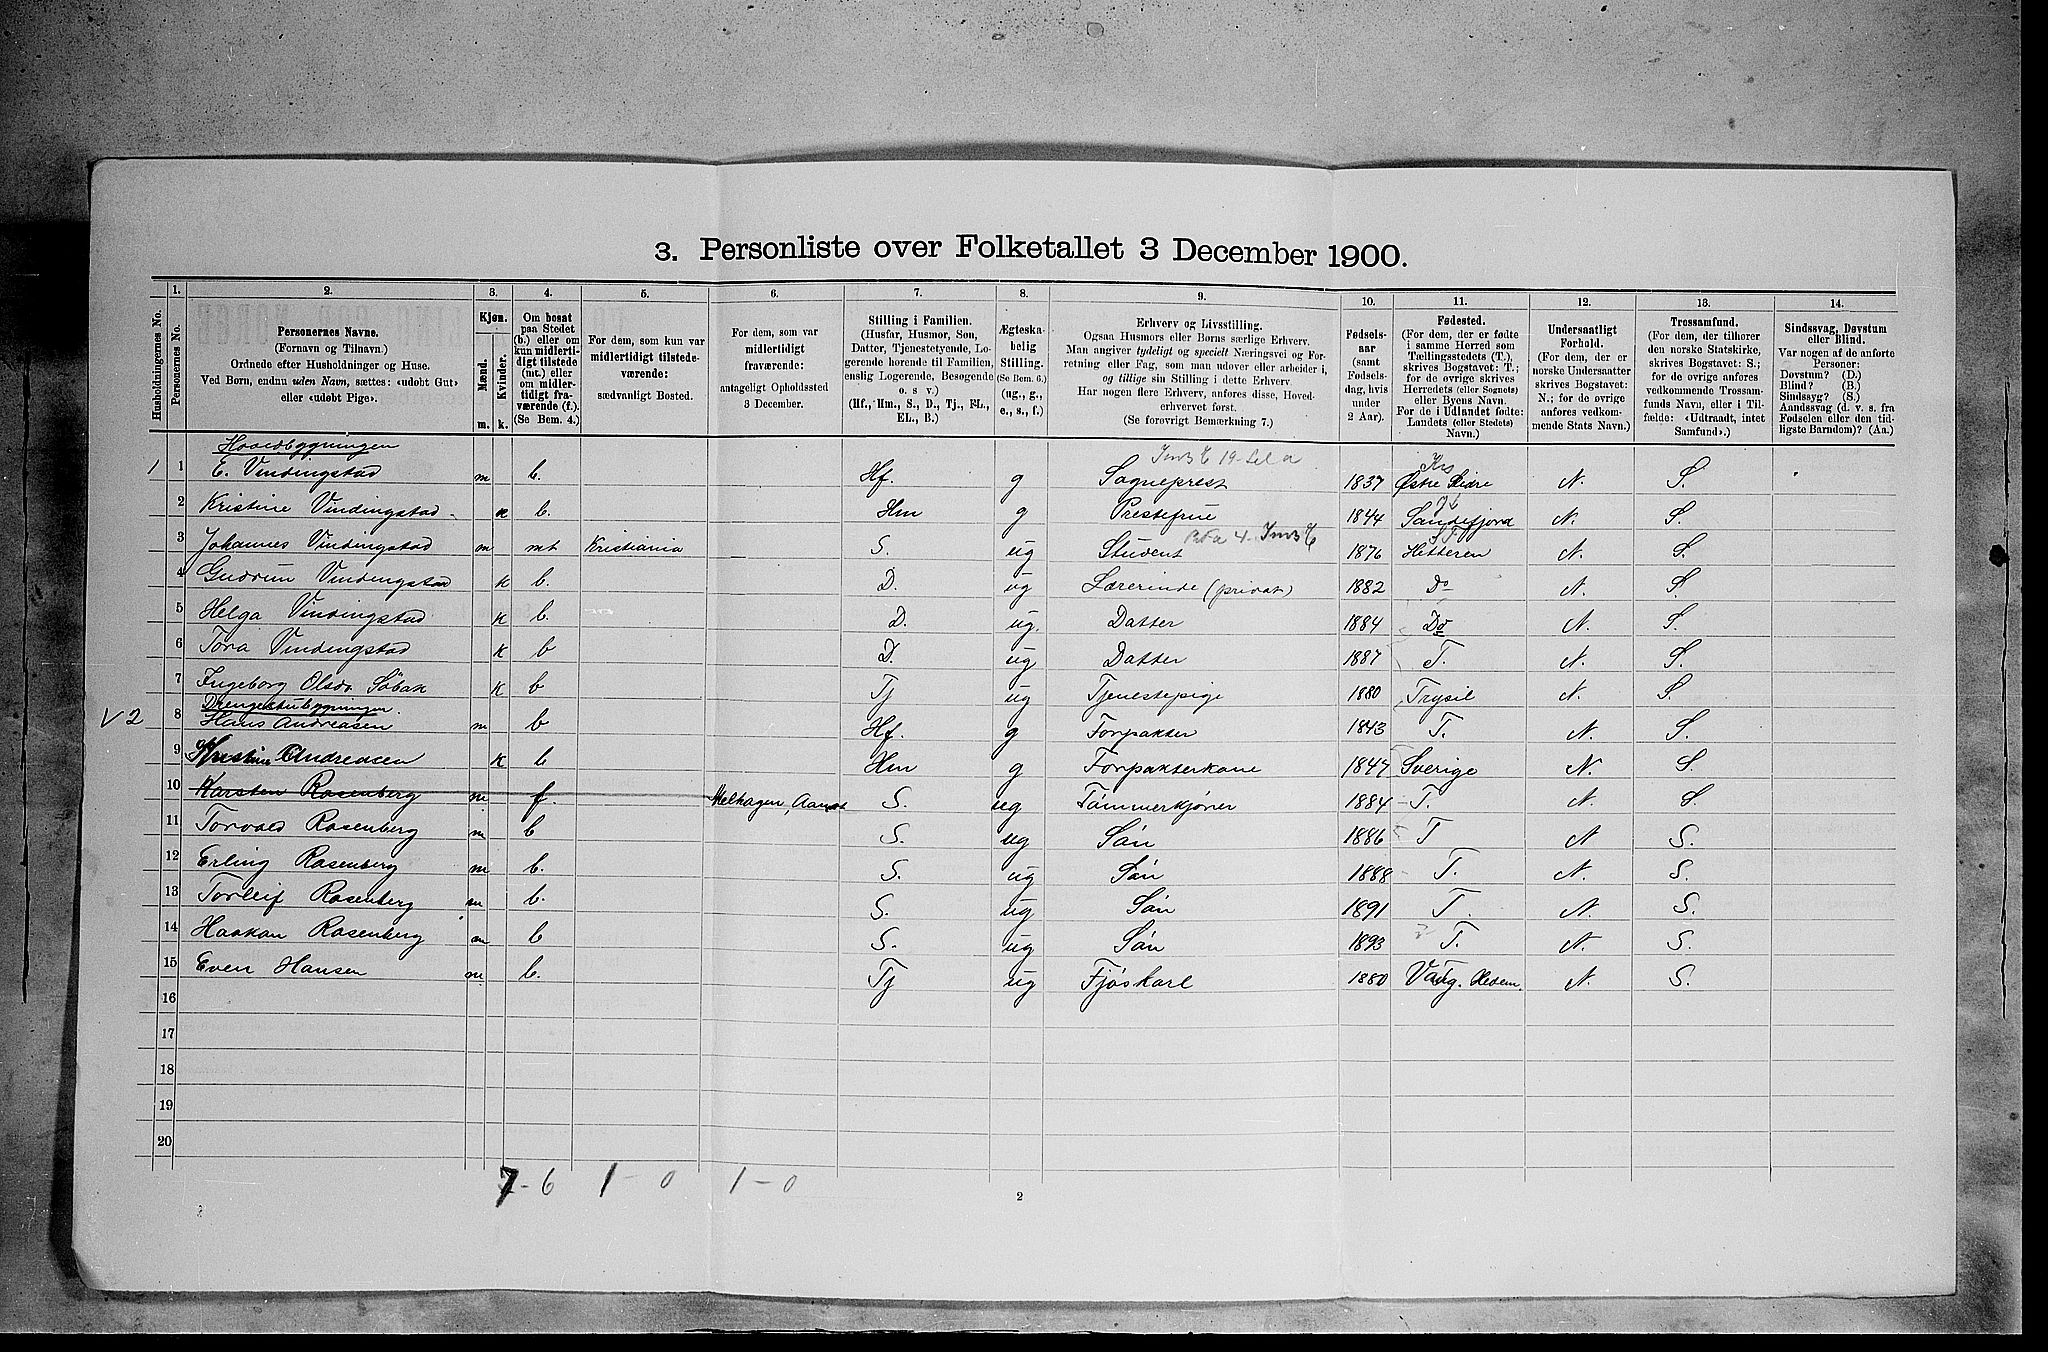 3. Personliste over Folketallet 3 December 1900.
1. 2. 3. 4. 5. 6. 7. 8. 9. 10. 11. 12. 13. 14.
Husholdningernes No.
Personernes No.
Personernes Navne.
(Fornavn og Tilnavn.)
Ordnede efter Husholdninger og Huse.
Ved Børn, endnu uden Navn, sættes: «udøbt Gut»
eller «udøbt Pige».
Kjøn.
Mænd.
Kvinder.
m. k.
Om bosat
paa Stedet
(b.) eller om
kun midlerti-
digt tilstede
(mt.) eller
om midler-
tidigt fra-
værende (f.).
(Se Bem. 4.)
For dem, som kun var
midlertidigt tilstede-
værende:
sædvanligt Bosted.
For dem, som var
midlertidigt
fraværende:
antageligt Opholdssted
3 December.
Stilling i Familien.
(Husfar, Husmor, Søn,
Datter, Tjenestetyende, Lo-
gerende hørende til Familien,
enslig Logerende, Besøgende
o. s v.)
(Hf., Hm., S., D., Tj., FL.,
EL., B.)
Ægteska-
belig
Stilling.
(Se Bem. 6.)
(ug., g.,
e., s., f.)
Erhverv og Livsstilling.
Ogsaa Husmors eller Børns særlige Erhverv.
Man angiver tydeligt og specielt Næringsvei og For-
retning eller Fag, som man udøver eller arbeider i,
og tillige sin Stilling i dette Erhverv.
Har nogen flere Erhverv, anføres disse, Hoved-
erhvervet først.
(Se forøvrigt Bemærkning 7.)
Fødsels-
aar
(samt
Fødsels-
dag, hvis
under
2 Aar).
Fødested.
(For dem, der er fødte
i samme Herred som
Tællingsstedets (T.),
skrives Bogstavet: T.;
for de øvrige skrives
Herredets (eller Sognets)
eller Byens Navn.
For de i Udlandet fødte:
Landets (eller Stedets)
Navn.)
Undersaatligt
Forhold.
(For dem, der er
norske Undersaatter
skrives Bogstavet:
N.; for de øvrige
anføres vedkom-
mende Stats Navn.)
Trossamfund.
(For dem, der tilhører
den norske Statskirke,
skrives Bogstavet: S.;
for de øvrige anføres
vedkommende Trossam-
funds Navn, eller i Til-
fælde: «Udtraadt, intet
Samfund».)
Sindssvag, Døvstum
eller Blind.
Var nogen af de anførte
Personer:
Døvstum? (D.)
Blind? (B.)
Sindssyg? (S.)
Aandssvag (d. v. s. fra
Fødselen eller den tid-
ligste Barndom)? (Aa.)
Hovedbygningen
1 1 E. Vindingstad m b. Hf. g Sogneprest 1837 Østre Slidre N. S.
2 Kristine Vindingstad k b. Hm g Prestefrue 1844 Sandefjord N. S.
3 Johannes Vindingstad m mt Kristiania S. ug Student 1876 Hitteren N. S.
4 Gudrun Vindingstad k b. D. ug Lærerinde (privat) 1882 Do N. S.
5 Helga Vindingstad k b. D. ug. Datter 1884 Do N. S.
6 Tora Vindingstad k b D. ug Datter 1887 T. N. S.
7 Ingeborg Olsdr. Söbak k b Tj ug Tjenestepige 1880 Trysil N. S.
Drengestubygningen.
V 2 8 Hans Andreasen m b Hf. g Forpakter 1843 T. N. S.
9 Kristine Andreasen k b Hm g Forpakterkone 1847 Sverige N. S.
10 Karsten Rosenberg m f. Melhagen, Aamot S. ug Tømmerkjører 1884 T. N. S.
11 Torvald Rosenberg m b S. ug Søn 1886 T N S.
12 Erling Rosenberg m b. S. ug Søn 1888 T. N. S.
13 Torleif Rosenberg m b. S. ug Søn 1891 T. N. S.
14 Haakon Rosenberg m b S. ug Søn 1893 T. N. S.
15 Even Hansen m b. Tj ug Fjøskarl 1880 Vang. Hedem. N. S.
16
17
18
19
20
7-6 1-0 1-0
2